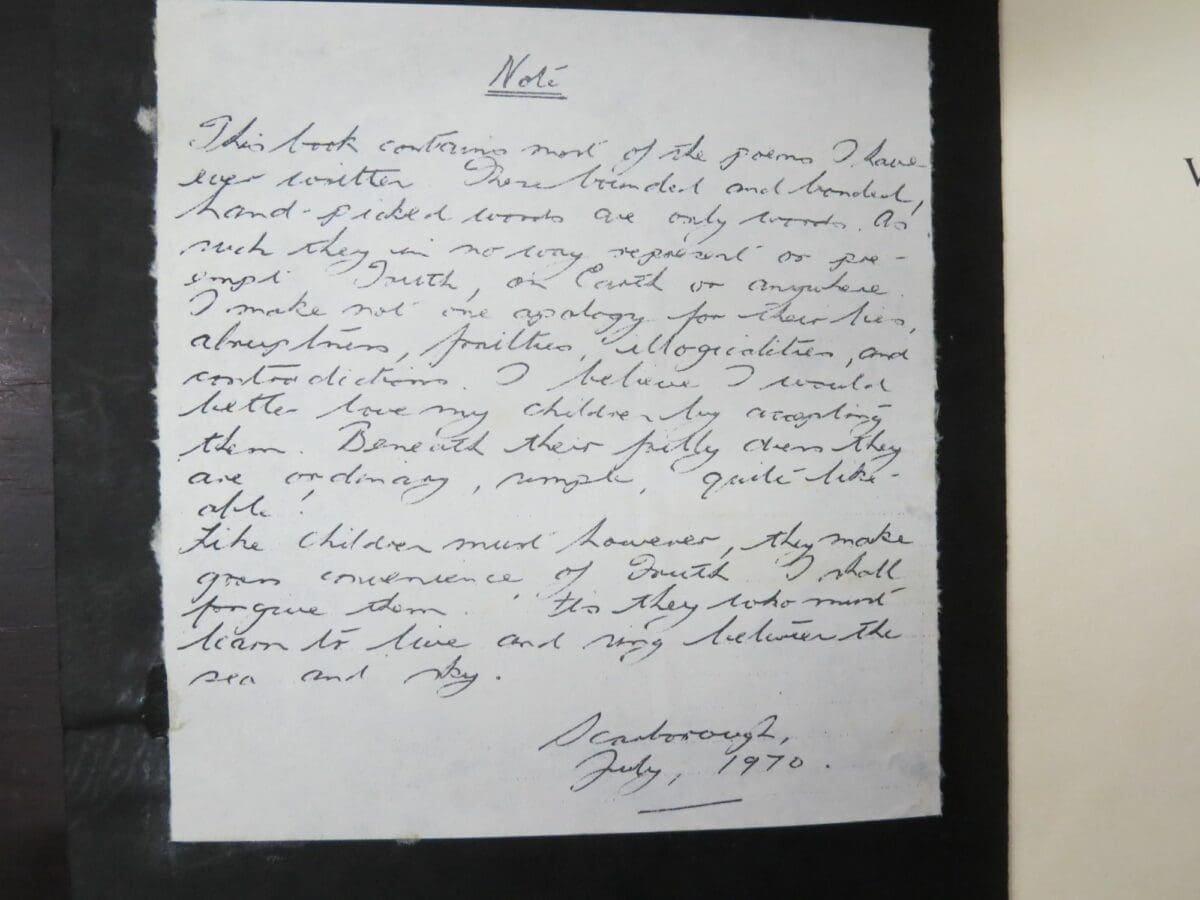 Note
This book contains most of the poems I have
ever written. These bounded and bonded,
hand-picked words are only words. As
such they in no way represent or pre-
empt Truth, on Earth or anywhere.
I make not one apology for their lies,
abruptness, frailties, illogicalities, and
contradictions. I believe I would
better love my children by accepting
them. Beneath their frilly dress they
are ordinary, simple, quite like-
able!
Like children must however, they make
gross convenience of Truth. I shall
forgive them. 'Tis they who must
learn to live and sing between the
sea and sky.
Scarborough,
July, 1970.